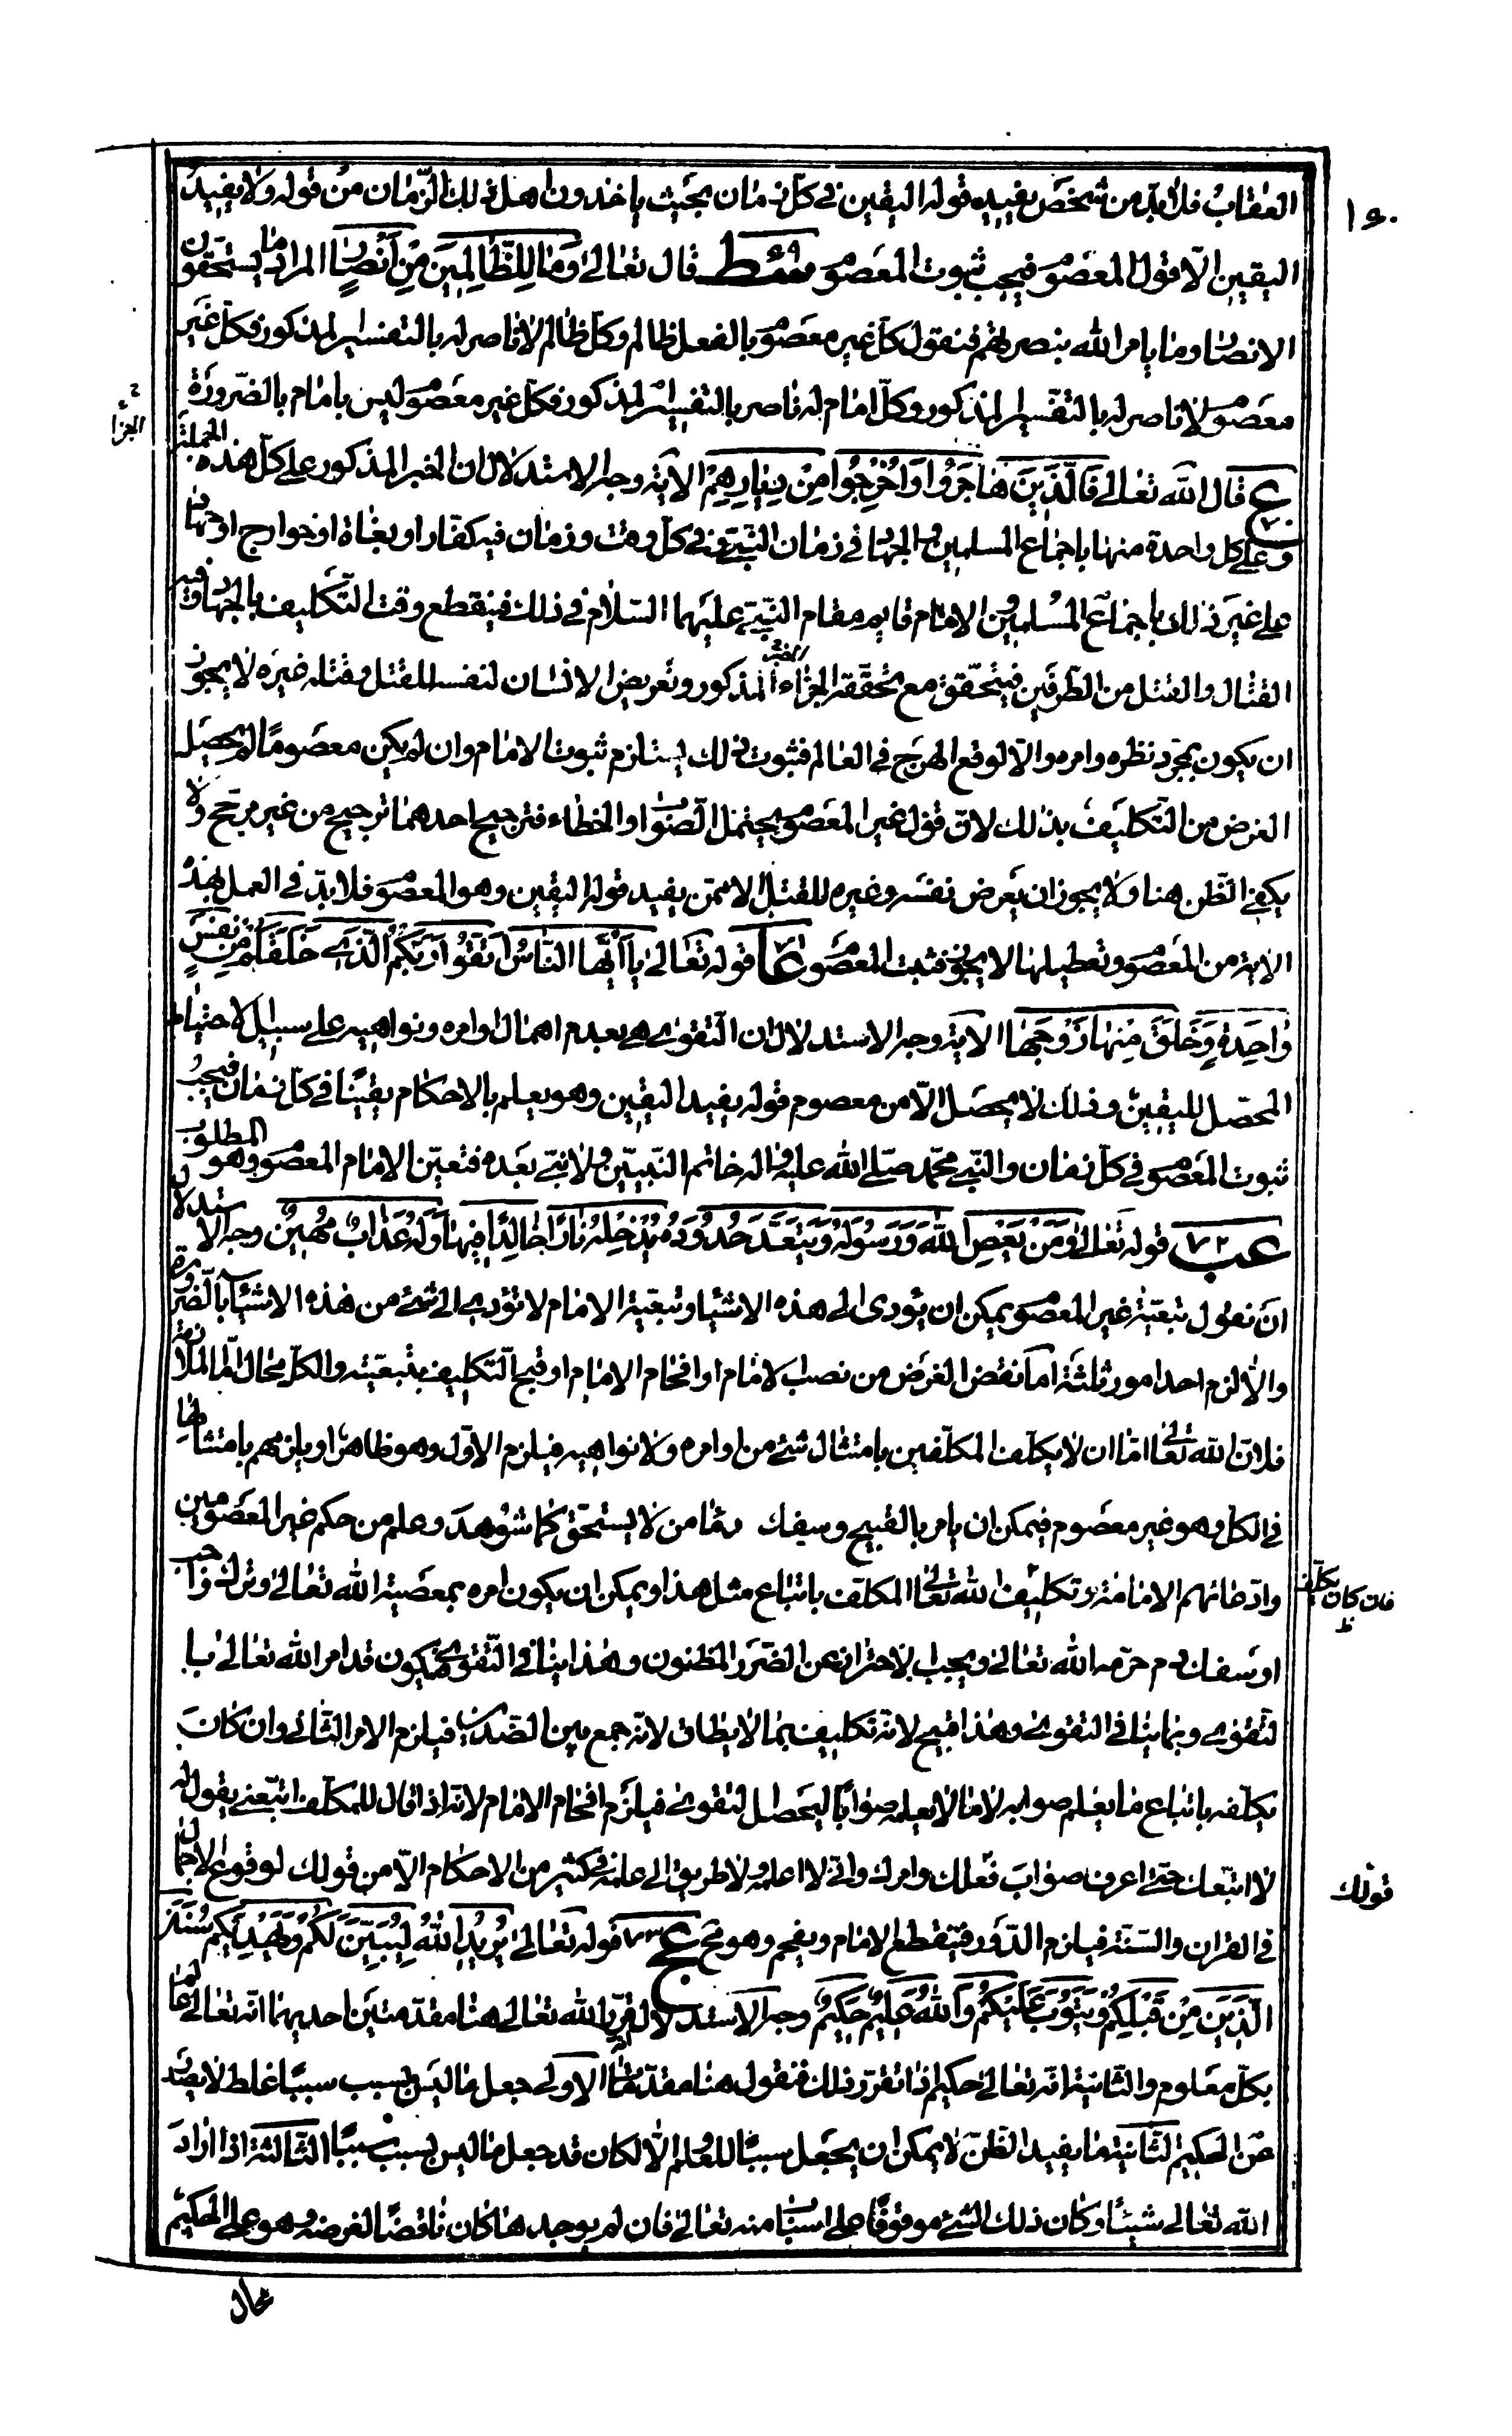 ١٥٠
العقاب فلابدّ من شخص يفيد قوله اليقين في كلّ زمان بحيث ياخذون اهل ذلك الزّمان من قوله ولا يفيد
اليقين الّا قول المعصوم فيجب ثبوت المعصوم سط ٦٩ قال تعالى وَمَا لِلظَّالِمِينَ مِنْ أَنْصَارٍ المراد ما يستحقّون
الانصار وما يامر الله بنصرتهم فنقول كلّ غير معصوم بالفعل ظالم وكلّ ظالم لا ناصر له بالتفسير المذكور فكلّ غير
معصوم لا ناصر له بالتفسير المذكور وكلّ امام له ناصر بالتفسير المذكور فكلّ غير معصوم ليس بامام بالضّرورة
ع ٧٠ قال الله تعالى فَالَّذِينَ هَاجَرُوا وَأُخْرِجُوا مِنْ دِيَارِهِمْ الآية وجه الاستدلال ان الخبر المذكور على كلّ هذه الجملة
وعلى كل واحدة منها باجماع المسلمين والجهاد في زمان النّبيّ وفي كلّ وقت وزمان فيه كفّار او بغاة او خوارج او جهاد
على غير ذلك باجماع المسلمين والامام قايم مقام النّبيّ عليهما السّلام في ذلك فينقطع وقت التّكليف بالجهاد وفيه
القتال والقتل من الطّرفين فيتحقّق مع تحقّقه الجزاء المذكور وتعريض الانسان لنفسه للقتل وقتله غيره لا يجوز
ان يكون بمجرّد نظره وامره والّا لوقع الهرج في العالم فثبوت ذلك يستلزم ثبوت الامام وان لم يكن معصومًا لم يحصل
الغرض من التّكليف بذلك لانّ قول غير المعصوم يحتمل الصّواب والخطاء فترجيح احدهما ترجيح من غير مرجّح ولا
يكفي الظّن هنا ولا يجوز ان يعرض نفسه وغيره للقتل الا ممّن يفيد قوله اليقين وهو المعصوم فلا بدّ في العمل بهذه
الاية من المعصوم وتعطيلها لا يجوز فثبت المعصوم عا ٧١ قوله تعالى يَا أَيُّهَا النَّاسُ اتَّقُوا رَبَّكُمُ الَّذِي خَلَقَكُمْ مِنْ نَفْسٍ
وَاحِدَةٍ وَخَلَقَ مِنْهَا زَوْجَهَا الآية وجه الاستدلال ان التّقوى هي بعدم اهمال اوامره ونواهيه على سبيل الاحتياط
المحصّل لليقين وذلك لا يحصل الّا من معصوم قوله يفيد اليقين وهو يعلم بالاحكام يقينًا في كلّ زمان فيجب
ثبوت المعصوم في كلّ زمان والنّبي محمّد صلّى الله عليه واله خاتم النّبيّين ولا نبيّ بعده فتعيّن الامام المعصوم وهو المطلوب
عب ٧٢ قوله تعالى وَمَنْ يَعْصِ اللَّهَ وَرَسُولَهُ وَيَتَعَدَّ حُدُودَهُ يُدْخِلْهُ نَارًا خَالِدًا فِيهَا وَلَهُ عَذَابٌ مُهِينٌ وجه الاستدلال
ان نقول تبعيّة غير المعصوم يمكن ان يؤدى الى هذه الاشياء وتبعيّة الامام لا تؤدي الى شيء من هذه الاشياء بالضّرورة
والّا لزم احد امور ثلثة اما نقض الغرض من نصب الامام او افحام الامام او قبح التّكليف بتبعيّته والكلّ محال امّا الملازمة
فلانّ الله تعالى امّا ان لا يكلّف المكلّفين بامتثال شيء من اوامره ولا نواهيه فيلزم الاوّل وهو ظاهر او يلزمهم بامتثالها
في الكل وهو غير معصوم فيمكن ان يامر بالقبيح وسفك دما من لا يستحقّ كما شوهد وعلم من حكم غير المعصومين
وادّعائهم الامامة وتكليف الله تعالى المكلّف باتباع مثل هذا ويمكن ان يكون امره بمعصية الله تعالى وترك واجب
او سفك دم حرّمه الله تعالى ويجب الاحتراز عن الضّرر المظنون وهذا ينافي التّقوى فيكون قد امر الله تعالى با
لتّقوى وبما ينافي التقوى وهذا قبيح لانّه تكليف بما لا يطاق لانّه جمع بين الضدّين فيلزم الامر الثّاني وان كان
يكلّفه باتباع ما يعلم صوابه لا ما لا يعلمه صوابًا ليحصل التقوى فيلزم افحام الامام لانّه اذا قال للمكلّف اتبعني يقول له
لا اتبعك حتّى اعرف صواب فعلك وامرك وانّي لا اعلمه ولا طريق الى علمه في كثير من الاحكام الّا من قولك لوقوع الاجمال
في القران والسّنّة فيلزم الدّور فينقطع الامام ويفحم وهو مح عج ٧٣ قوله تعالى يُرِيدُ اللَّهُ لِيُبَيِّنَ لَكُمْ وَيَهْدِيَكُمْ سُنَنَ
الَّذِينَ مِنْ قَبْلِكُمْ وَيَتُوبَ عَلَيْكُمْ وَاللَّهُ عَلِيمٌ حَكِيمٌ وجه الاستدلال الله تعالى هنا مقدّمتين احديهما انّه تعالى عالم
بكلّ معلوم والثّانية انّه تعالى حكيم اذا تقرّر ذلك فنقول هنا مقدّمات الاولى جعل ما ليس بسبب سببًا غلط لا يصدر
من الحكيم الثّانية ما يفيد الظّنّ لا يمكن ان يجعل سببًا للعلم والّا لكان قد جعل ما ليس بسبب سببًا الثّالثة اذا اراد
الله تعالى شيئًا وكان ذلك الشّيء موقوفًا على اسباب منه تعالى فان لم يوجدها كان ناقضًا لغرضه وهو على الحكيم
محال
الجزا
الخبر
فان كان يكلّف ظ
قولك